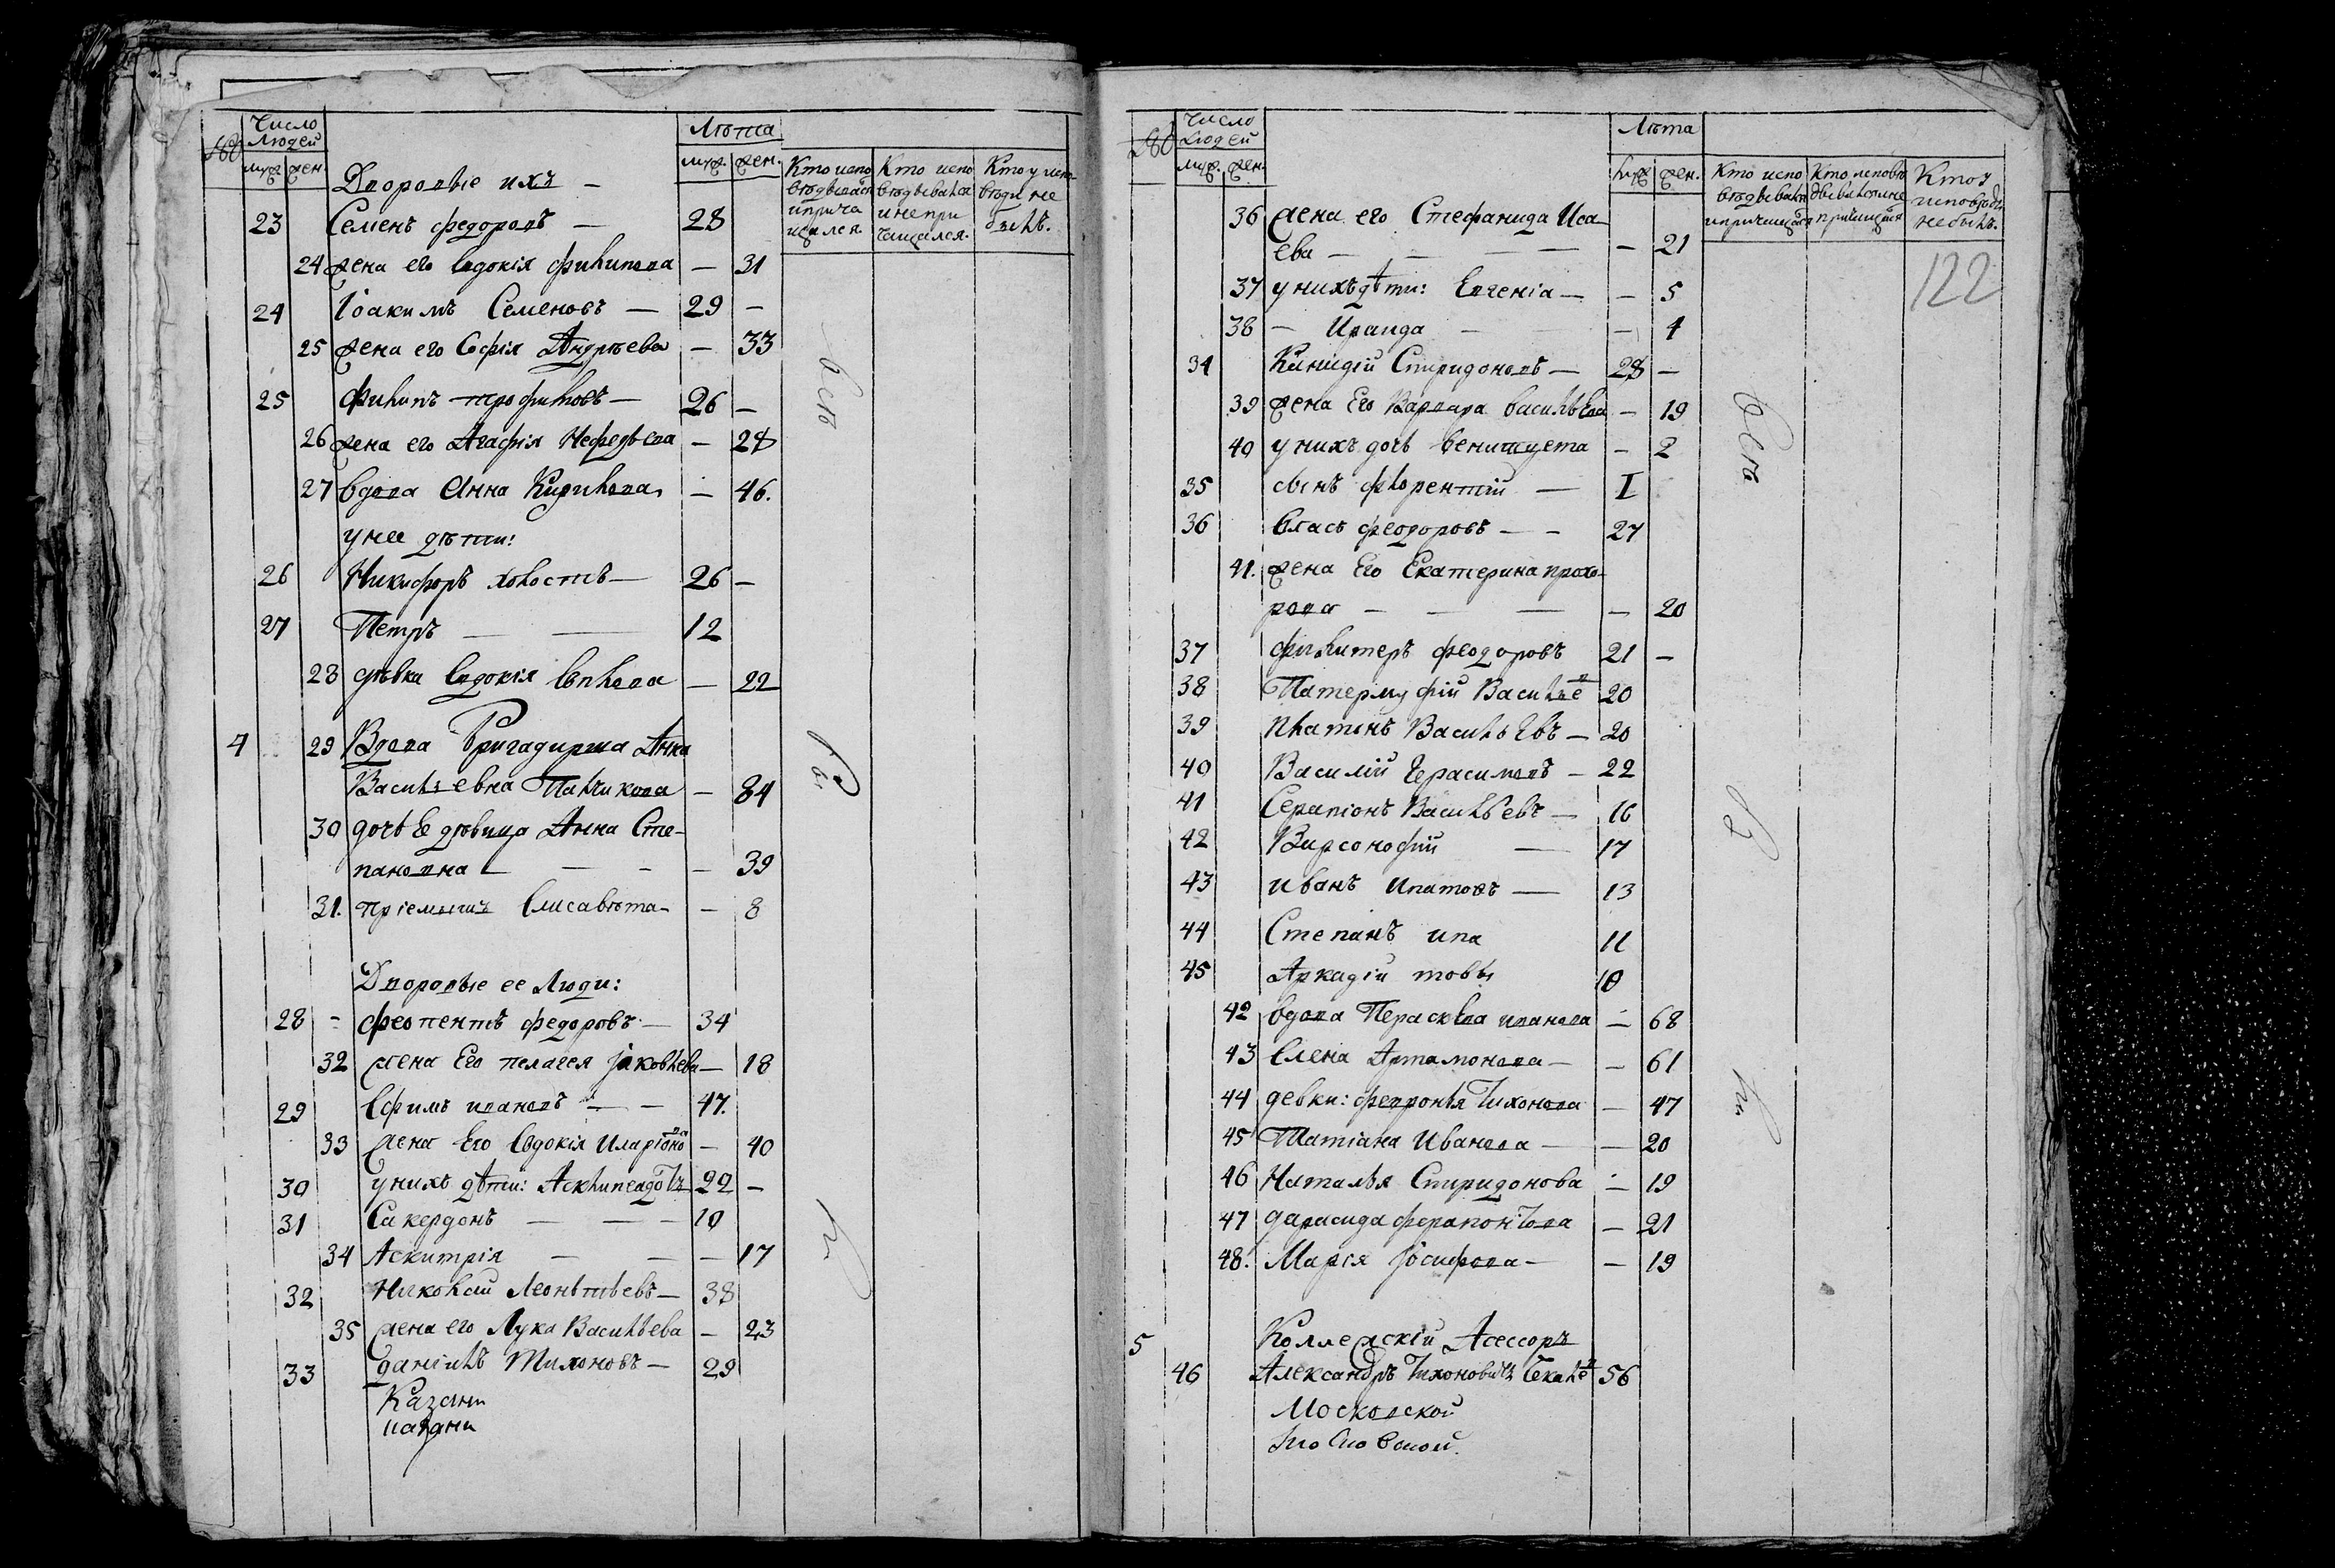 Число
Людей
муж. жен.
Лѣта
муж. жен.
Кто испо
вѣдывался
и прича
щался
Кто испо
вѣдывался
и не при
чащался.
Кто у испо
вѣди не
былъ.
Дворовые ихъ —
23 Семенъ Федоровъ — 28
24 жена его Евдокія Филипова — 31
24 Іоакимъ Семеновъ — 29 —
25 жена его Софія Андрѣева — 33
25 Филипъ Трофимовъ — 26 —
26 жена его Агафія Нефедьева — 28
27 вдова Анна Кирилова — 46.
у нее дѣти:
26 Никифоръ холостъ — 26 —
27 Петръ — — 12
28 дѣвка Евдокія — 22
4 29 Вдова Бригадирша Анна
Васильевна Панчикова — 84
30 дочь Ее дѣвица Анна Сте-
пановна — — - — 39
31. пріемышъ Елисавѣта — — 8
Дворовые ее Люди:
28 - Феопентъ Федоровъ — 34
32 жена Его пелагея Іаковлева — 18
29 Ефимъ ивановъ — — 47.
33 жена Его Евдокія Иларіонова — 40
30 у нихъ дѣти: Асклипеадотъ 22 —
31 Сакердонъ — — — 10
34 Аскитрія — — — 17
32 Николай Леонтьевъ — 38
35 жена его Лука Васильева — 23
33 Даніилъ Тихоновъ — 29
Число
Людей
муж. жен.
Лѣта
муж. жен.
Кто испо
вѣдывался
и причащался
Кто исповѣ
дывался и не
причащался
Кто у
исповѣди
не былъ.
122
36 жена его Стефанида Иса-
ева — — — — 21
37 у нихъ дѣти: Евгеніа — — 5
38 — Ираида — — 4
34 Киндій Спиридоновъ — 28 —
39 жена Его Варвара васильева — 19
40 у нихъ дочь — 2
35 сынъ Флорентій — I
36 Власъ Феодоровъ — — 27
41. жена Его Екатерина прохо-
рова — — — — 20
37 Филитеръ Феодоровъ 21 —
38 Патермуфій Васильев 20
39 Платонъ Васильевъ — 20
40 Василій Герасимовъ — 22
41 Серапіонъ Васильевъ — 16
42 Варсонофій — 17
43 иванъ Ипатовъ — 13
44 Степанъ ипа 11
45 Аркадій товы 10
42 вдова Перасковa иванова — 68
43 Елена Артамонова — — 61
44 девки: Февронья Тихонова — 47
45 Татіана Иванова — — 20
46 Наталья Спиридонова — 19
47 Дарасида Ферапонтова — 21
48. Марія Іосифова — — 19
5 Коллежскій Асессоръ
46 Александръ Тихоновичъ 56
Московской